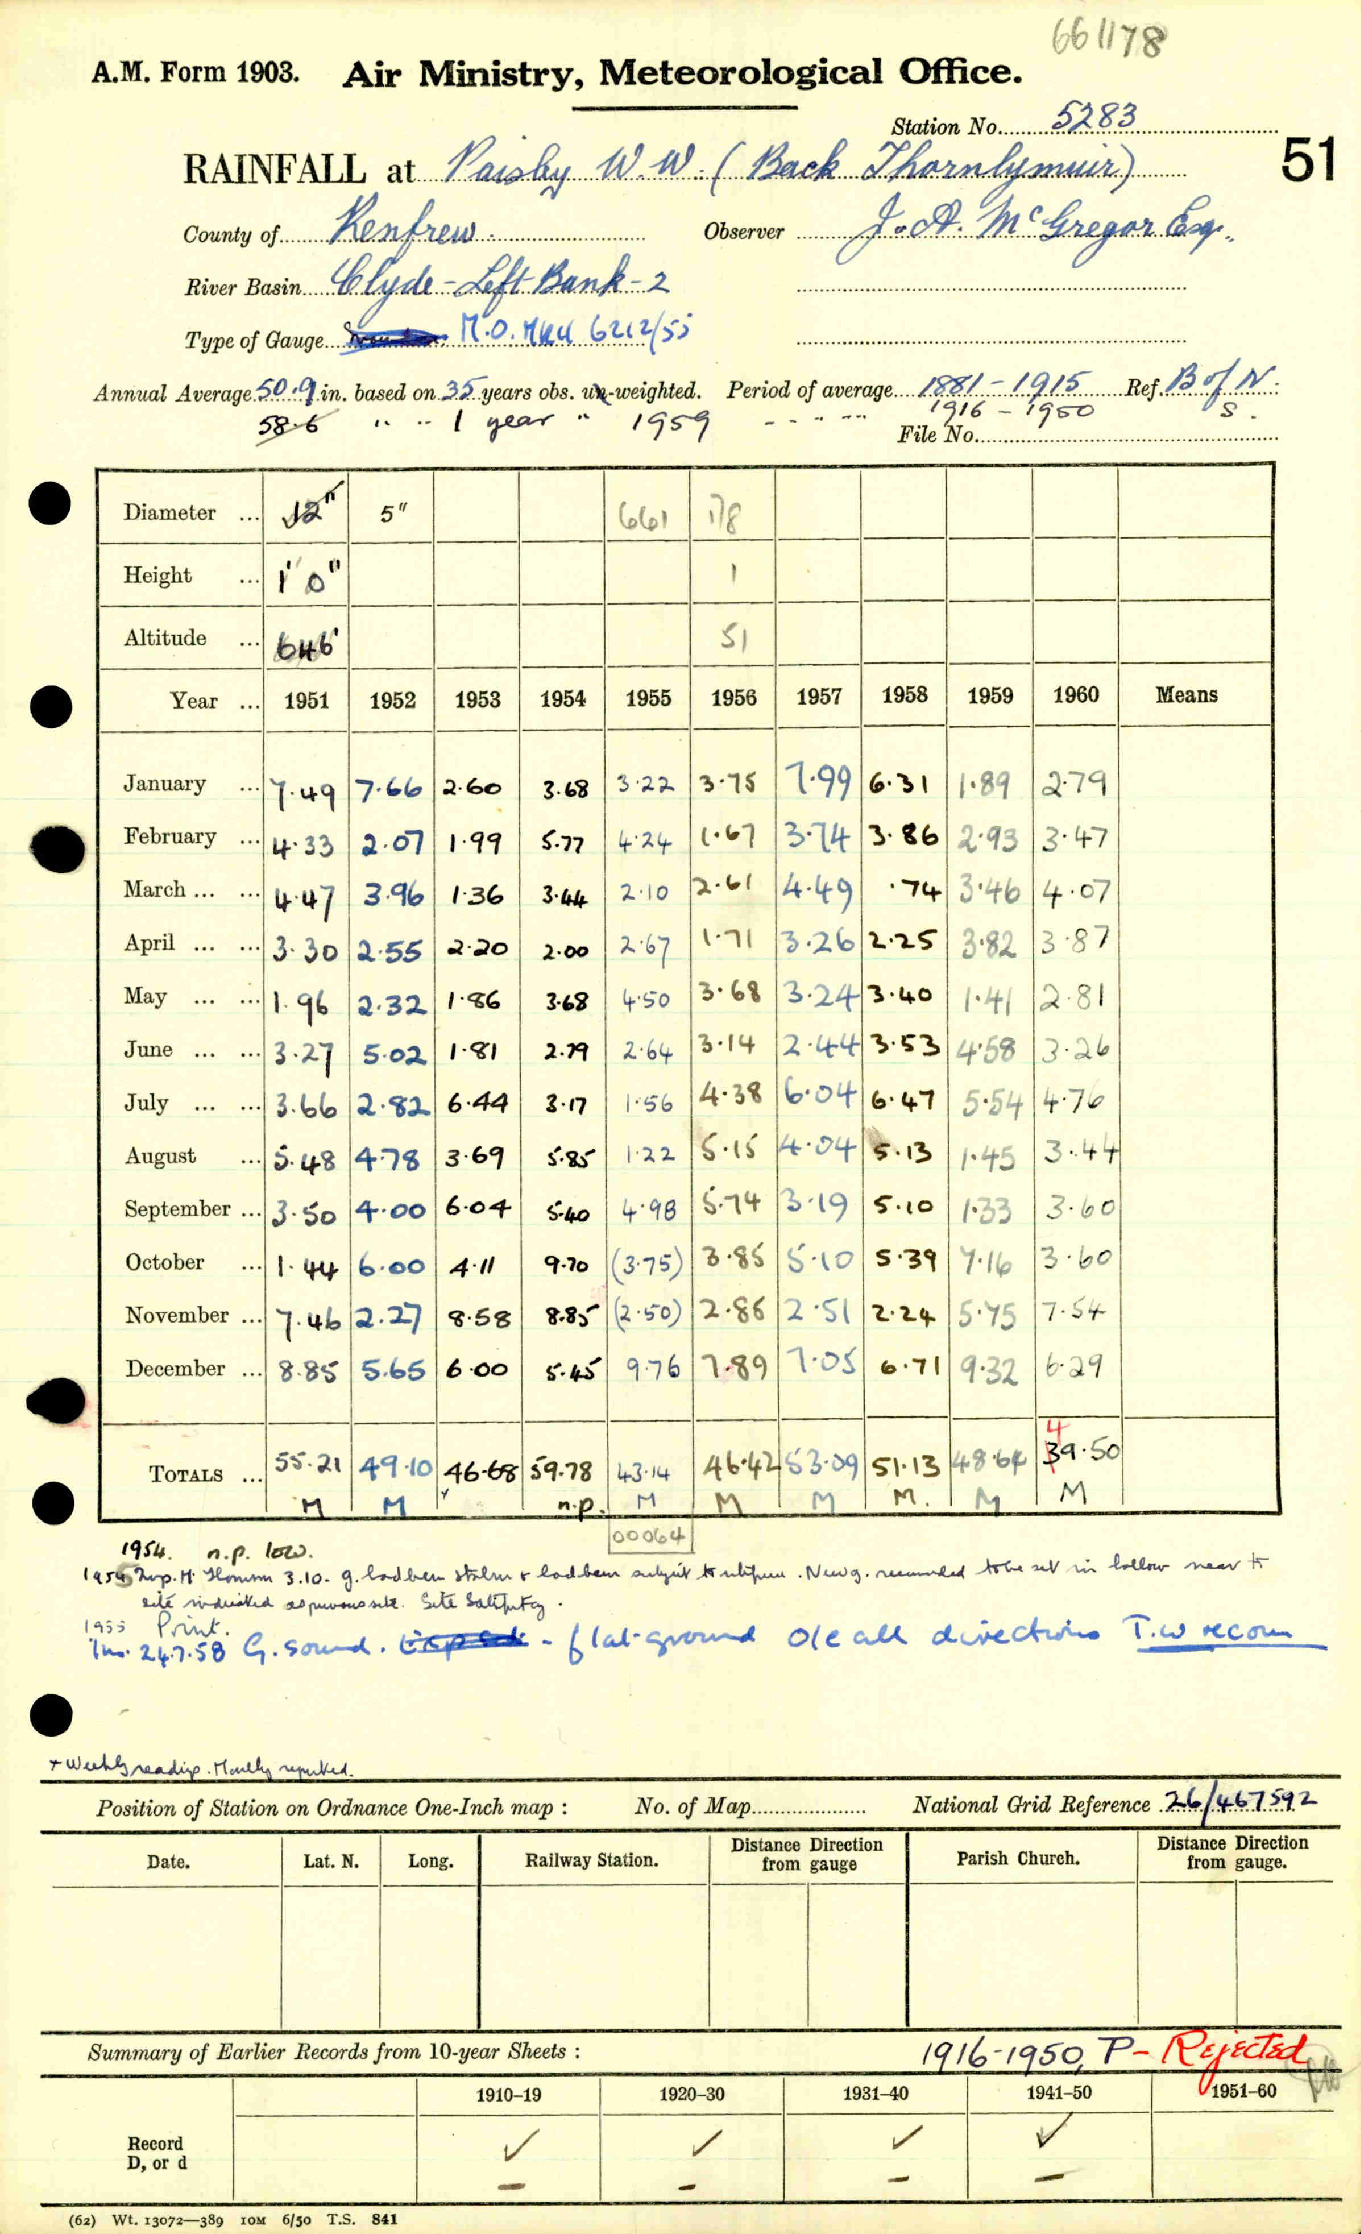 661178
A.M. Form 1903. Air Ministry, Meteorological Office.
Station No. 5283
RAINFALL at Paisley W.W. (Back Thornlymuir) 51
County of Renfrew. Observer J.A. McGregor Esq.,
River Basin Clyde - Left Bank - 2
Type of Gauge M.O. MkII 6212/55
Annual Average 50.9 in. based on 35 years obs. un-weighted. Period of average 1881 - 1915 Ref. B of N.
58.6 " " 1 year " 1959 - - " - " 1916 - 1950 S.
File No.
Diameter ... 12" 5" 661 178
Height ... 1' 0" 1
Altitude ... 646' 51
Year ... 1951 1952 1953 1954 1955 1956 1957 1958 1959 1960 Means
January ... 7.49 7.66 2.60 3.68 3.22 3.75 7.99 6.31 1.89 2.79
February ... 4.33 2.07 1.99 5.77 4.24 1.67 3.74 3.86 2.93 3.47
March ... ... 4.47 3.96 1.36 3.44 2.10 2.61 4.49 .74 3.46 4.07
April ... ... 3.30 2.55 2.20 2.00 2.67 1.71 3.26 2.25 3.82 3.87
May ... ... 1.96 2.32 1.86 3.68 4.50 3.68 3.24 3.40 1.41 2.81
June ... ... 3.27 5.02 1.81 2.79 2.64 3.14 2.44 3.53 4.58 3.26
July ... ... 3.66 2.82 6.44 3.17 1.56 4.38 6.04 6.47 5.54 4.76
August ... 5.48 4.78 3.69 5.85 1.22 5.15 4.04 5.13 1.45 3.44
September ... 3.50 4.00 6.04 5.40 4.98 5.74 3.19 5.10 1.33 3.60
October ... 1.44 6.00 4.11 9.70 (3.75) 3.85 5.10 5.39 7.16 3.60
November ... 7.46 2.27 8.58 8.85 (2.50) 2.86 2.51 2.24 5.75 7.54
December ... 8.85 5.65 6.00 5.45 9.76 7.89 7.05 6.71 9.32 6.29
4
TOTALS ... 55.21 49.10 46.68 59.78 43.14 46.42 53.09 51.13 48.64 39.50
M M n.p. M M M M. M M
00064
1954. n.p. low.
1955 Insp. 3.10. g. had been stolen & had been subject to. New g. recommended to be set in hollow near to
site indicated as previous site. Site Satisfactory.
1955 Print.
Ins. 24.7.58 G. sound. - flat ground O/e all directions T.W recom
+ Weekly readings. Monthly reported.
Position of Station on Ordnance One-Inch map : No. of Map National Grid Reference 26/467592
Date. Lat. N. Long. Railway Station. Distance Direction from gauge Parish Church. Distance Direction from gauge.
Summary of Earlier Records from 10-year Sheets : 1916-1950, P - Rejected
1910–19 1920–30 1931–40 1941–50 1951–60
Record ✓ ✓ ✓ ✓
D, or d – – – –
(62) Wt. 13072—389 10M 6/50 T.S. 841